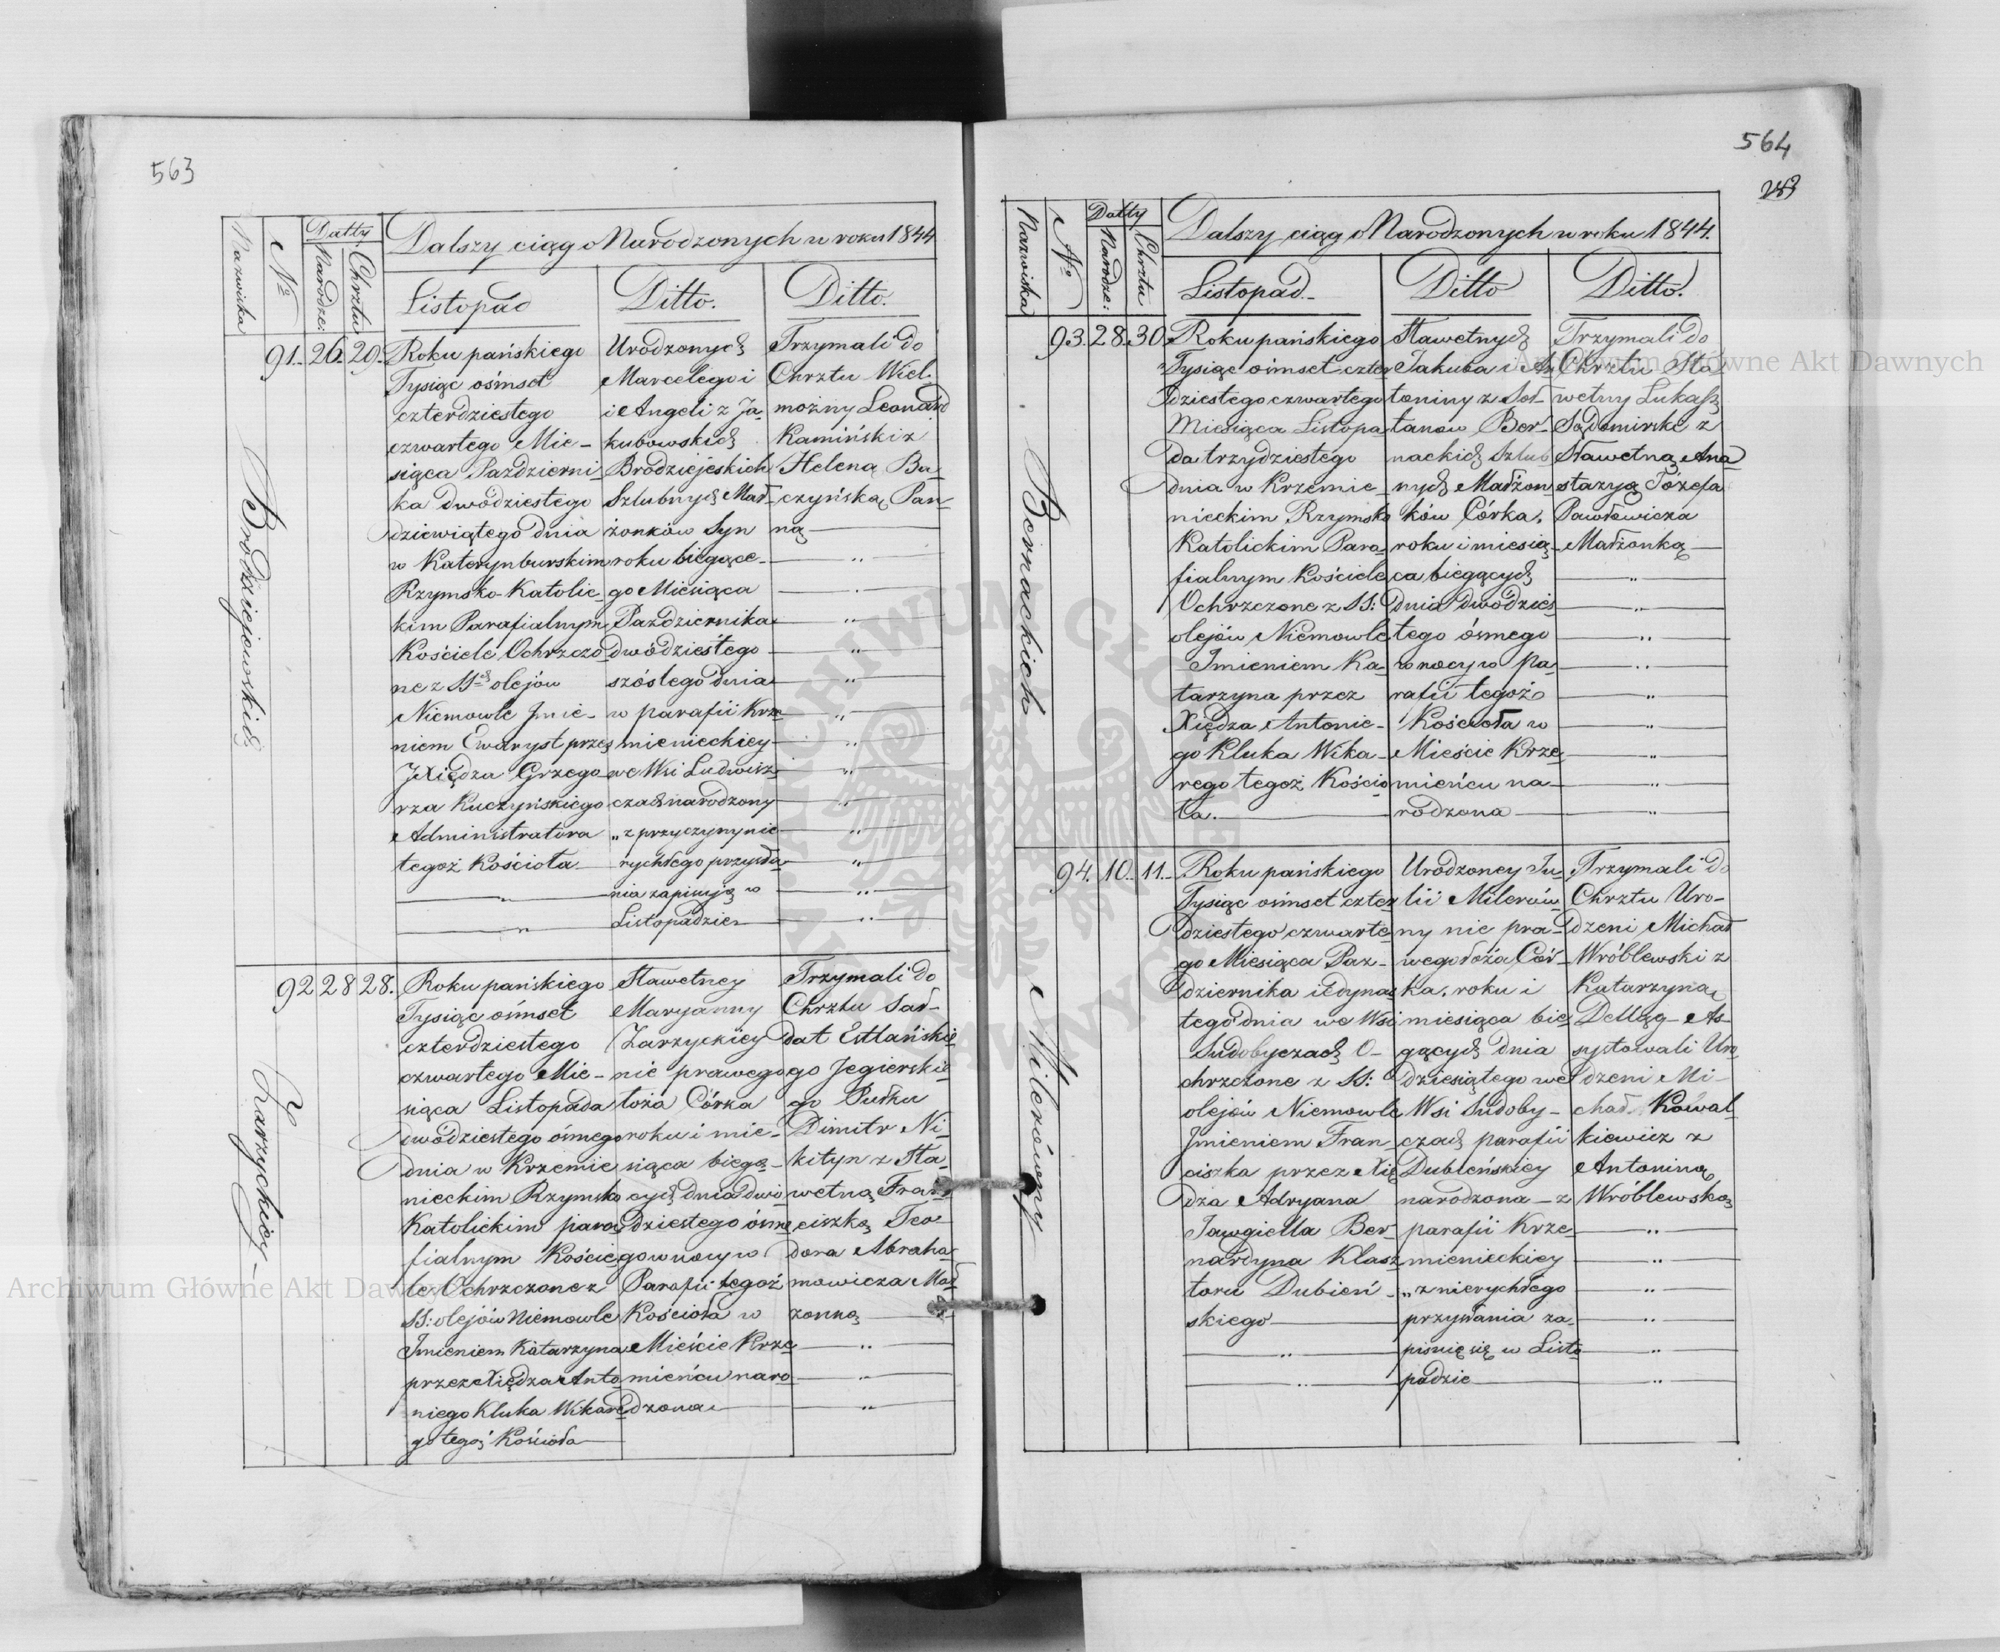 563
Nazwiska
No
Datty
Narodze:
Chrztu
Dalszy ciąg o Narodzonych w roku 1844
Listopad
Ditto.
Ditto.
Brodziejowskich
91. 26. 29.
Roku pańskiego
Tysiąc ośmset
czterdziestego
czwartego Mie-
siąca Pazdzierni
ka dwódziestego
dziewiątego dnia
w Katerynburskim
Rzymsko-Katolic-
kim Parafialnym
Kościele Ochrzczo
ne z SS. olejów
Niemowle Jmie-
niem Ewaryst przez
JXiędza Grzego-
rza Kuczyńskiego
Administratora
tegoż Kościoła
Urodzonych
Marcelego i
i Angeli z Ja-
kubowskich
Brodziejeskich
Szlubnych Mał-
żonków Syn
roku biegące-
go Miesiąca
Pazdziernika
dwódziestego
szóstego dnia
w parafii Krze
mienieckiey
we Wsi Ludwisz
czach narodzony
„ z przyczyny nie
rychłego przysła-
nia zapisuję w
Listopadzie
Trzymali do
Chrztu Wiel-
możny Leonard
Kamiński z
Heleną Bu-
czyńską Pan-
ną
Zarzyckiey
92 28 28.
Roku pańskiego
Tysiąc ośmset
czterdziestego
czwartego Mie-
siąca Listopada
dwódziestego ósmego
dnia w Krzemie
nieckim Rzymsko
Katolickim para
fialnym Koście
le Ochrzczone z
SS: olejów Niemowle
Imieniem Katarzyna
przez Xiędza Anto
niego Kluka Wikare
go tegoż Kościoła
Sławetney
Maryanny
Zarzyckiey
nie prawego
łoża Córka
roku i mie-
siąca biegą-
cych dnia dwó
dziestego ósme
go w nocy w
Parafii tegoż
Kościoła w
Mieście Krze
mieńcu naro
dzona
Trzymali do
Chrztu Sał-
dat Estlańskie
go Jegierskie-
go Pułku
Dimitr Ni-
kityn z Sła-
wetną Fran
ciszką Teo-
dora Abraha-
mowicza Mał-
żonką
564
Nazwiska
No
Datty
Narodze:
Chrztu
Dalszy ciąg o Narodzonych w roku 1844.
Listopad
Ditto
Ditto.
Bernackich
93. 28. 30.
Roku pańskiego
Tysiąc ośmset czter
dziestego czwartego
Miesiąca Listopa-
da trzydziestego
dnia w Krzemie-
nieckim Rzymsko
Katolickim Para-
fialnym Kościele
Ochrzczone z SS:
olejów Niemowle
Imieniem Ka-
tarzyna przez
Xiędza Antonie-
go Kluka Wika-
rego tegoż Kościo
ła.
Sławetnych
Jakuba i An
toniny z Soł-
tanow Ber-
nackich Szlub
nych Małżon
ków Córka,
roku i miesią-
ca biegących
dnia dwódzies
tego ósmego
w nocy w pa-
rafii tegoż
Kościoła w
Mieście Krze
mieńcu na-
rodzona
Trzymali do
Chrztu Sła
wetny Lukasz
Sądomirski z
Sławetną Ana
stazyą Józefa
Pawłowicza
Małżonką
Milerówny
94. 10. 11.
Roku pańskiego
Tysiąc ośmset czter
dziestego czwarte-
go Miesiąca Paz-
dziernika iedynas
tego dnia we Wsi
Sudobyczach O-
chrzczone z SS:
olejów Niemowle
Jmieniem Fran
ciszka przez Xię
dza Adryana
Jawgiella Ber-
nardyna Klasz
toru Dubień-
skiego
Urodzoney Ju-
lii Milerów-
ny nie pra-
wego łoża Cór-
ka, roku i
miesiąca bie
gących dnia
dziesiątego we
Wsi Sudoby-
czach parafii
Dubieńskiey
narodzona - z
parafii Krze-
mienieckiey
„ z nierychłego
przysłania za-
pisuię się w Listo
padzie
Trzymali do
Chrztu Uro-
dzeni Michał
Wróblewski z
Katarzyną
As-
systowali Uro
dzeni Mi-
chał Kowal-
kiewicz z
Antoniną
Wróblewską
Archiwum Główne Akt Dawnych
Archiwum Główne Akt Dawnych
ARCHIWUM GŁÓWNE AKT DAWNYCH